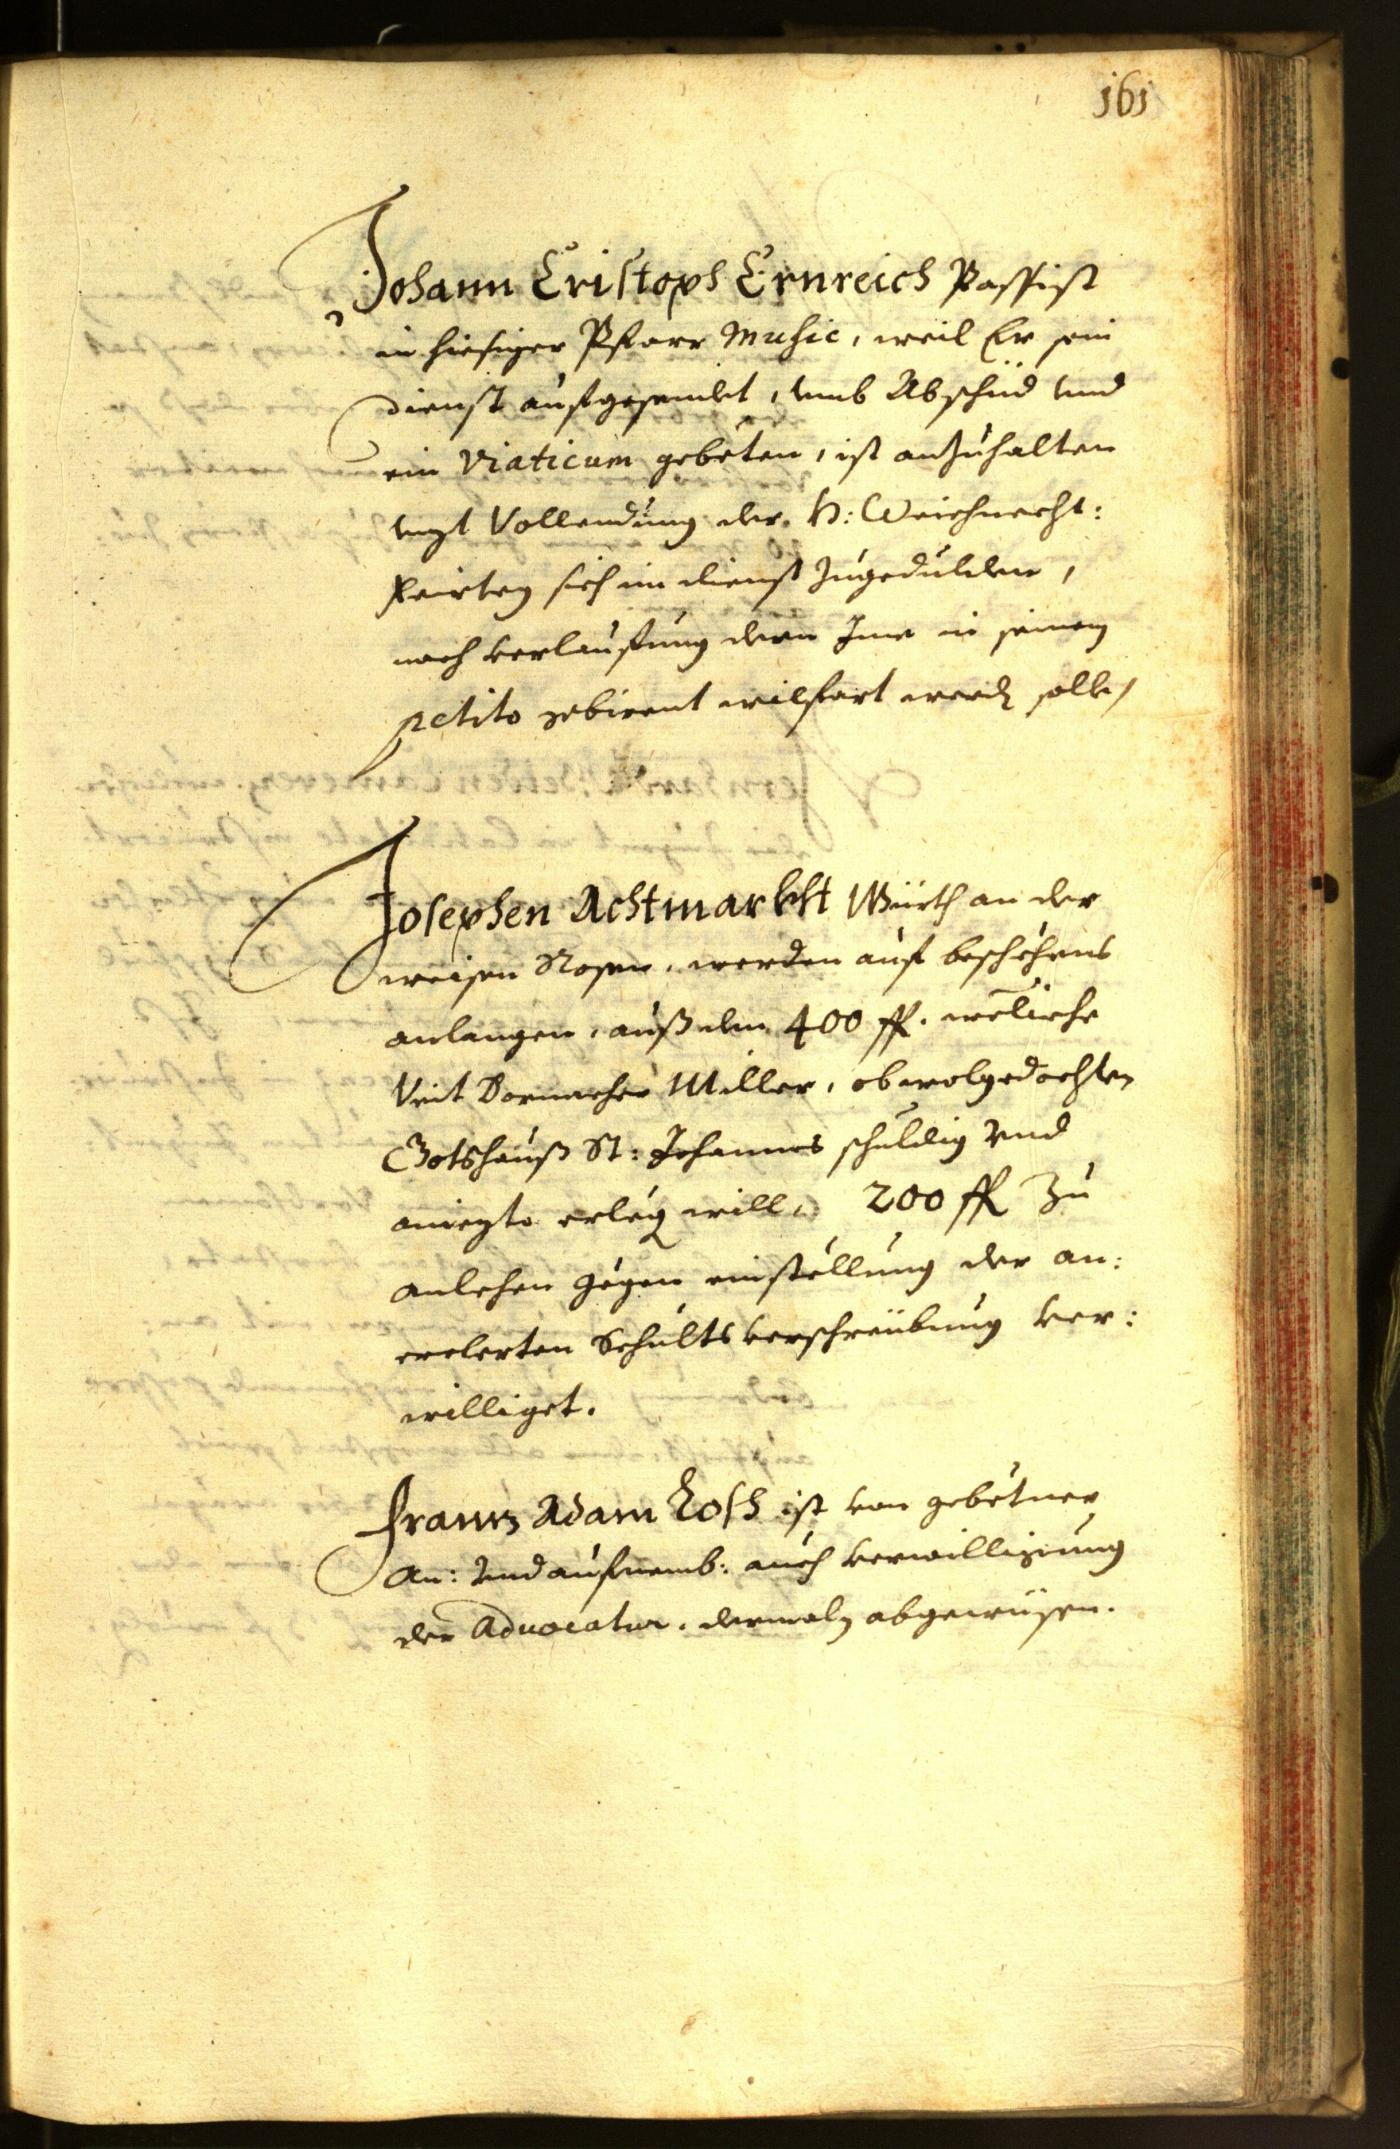 161
Johann Cristoph Ernreich Passist
in hiesiger Pfarr Music, weil Er sein
dienst aufgesendet, vmb Abschid vnd
ein Viaticum gebeten, ist anzuhalten
vnzt Vollendung der H: Weichnacht:
Feirteg sich im dienst zugedulden,
nach verlauffung dern Ime in seinem
petito gebirent wilfart werdn solle,
Josephen Achtmarkht Würth an der
weisen Rosen, werden auf beschehens
anlangen, auß dem 400 fl. weliche
Veit Dornacher Miller, obwolgedachten
Gotshauß St: Johannes schuldig Vnd
aniezto erleg will, 200 fl zu
anlehen gegen einstellung der an:
erclerten Schults verschreibung ver:
williget.
Frannz Adam Losh ist von gebetner
An: Vnd aufnemb: auch verwilligung
der Aduocatur, dermaln abgewisen.